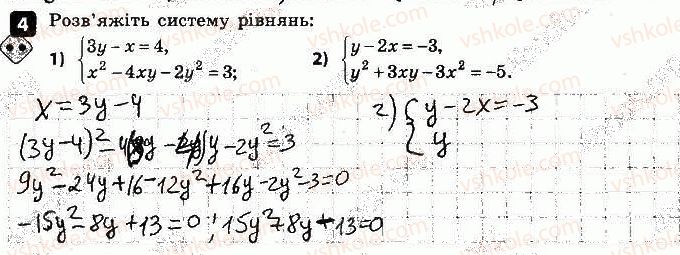 4 Розв'яжіть систему рівнянь:
1) {3y − x = 4, x² − 4xy − 2y² = 3;
2) {y − 2x = −3, y² + 3xy − 3x² = −5.
x = 3y − 4
2) {y − 2x = −3
{y
(3y − 4)² − 4(3y − 4)y − 2y² = 3
9y² − 24y + 16 − 12y² + 16y − 2y² − 3 = 0
−15y² − 8y + 13 = 0; 15y² + 8y + 13 = 0
vshkole.com